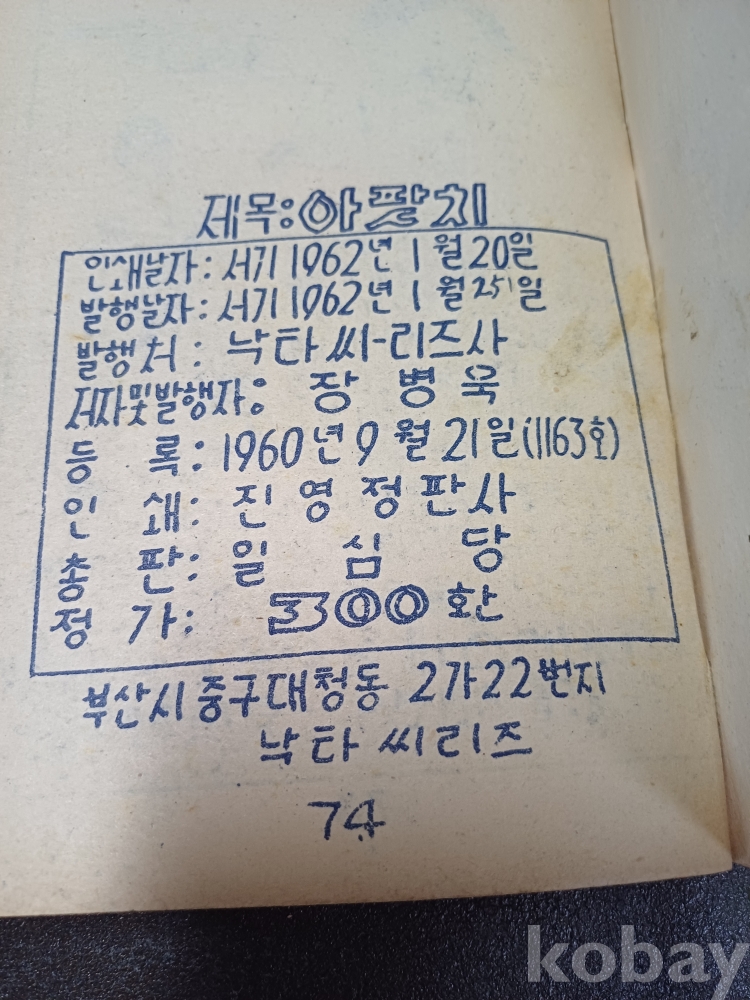 제목:아팔치
인쇄날자: 서기 1962년 1월 20일
발행날자: 서기 1962년 1월 25일
발행처: 낙타씨-리즈사
저자및발행자: 장 병 욱
등 록: 1960년 9월 21일(1163호)
인 쇄: 진 영 정 판 사
총 판: 일 심 당
정 가: 300환
부산시 중구 대청동 2가 22번지
낙타 씨리즈
74
kobay